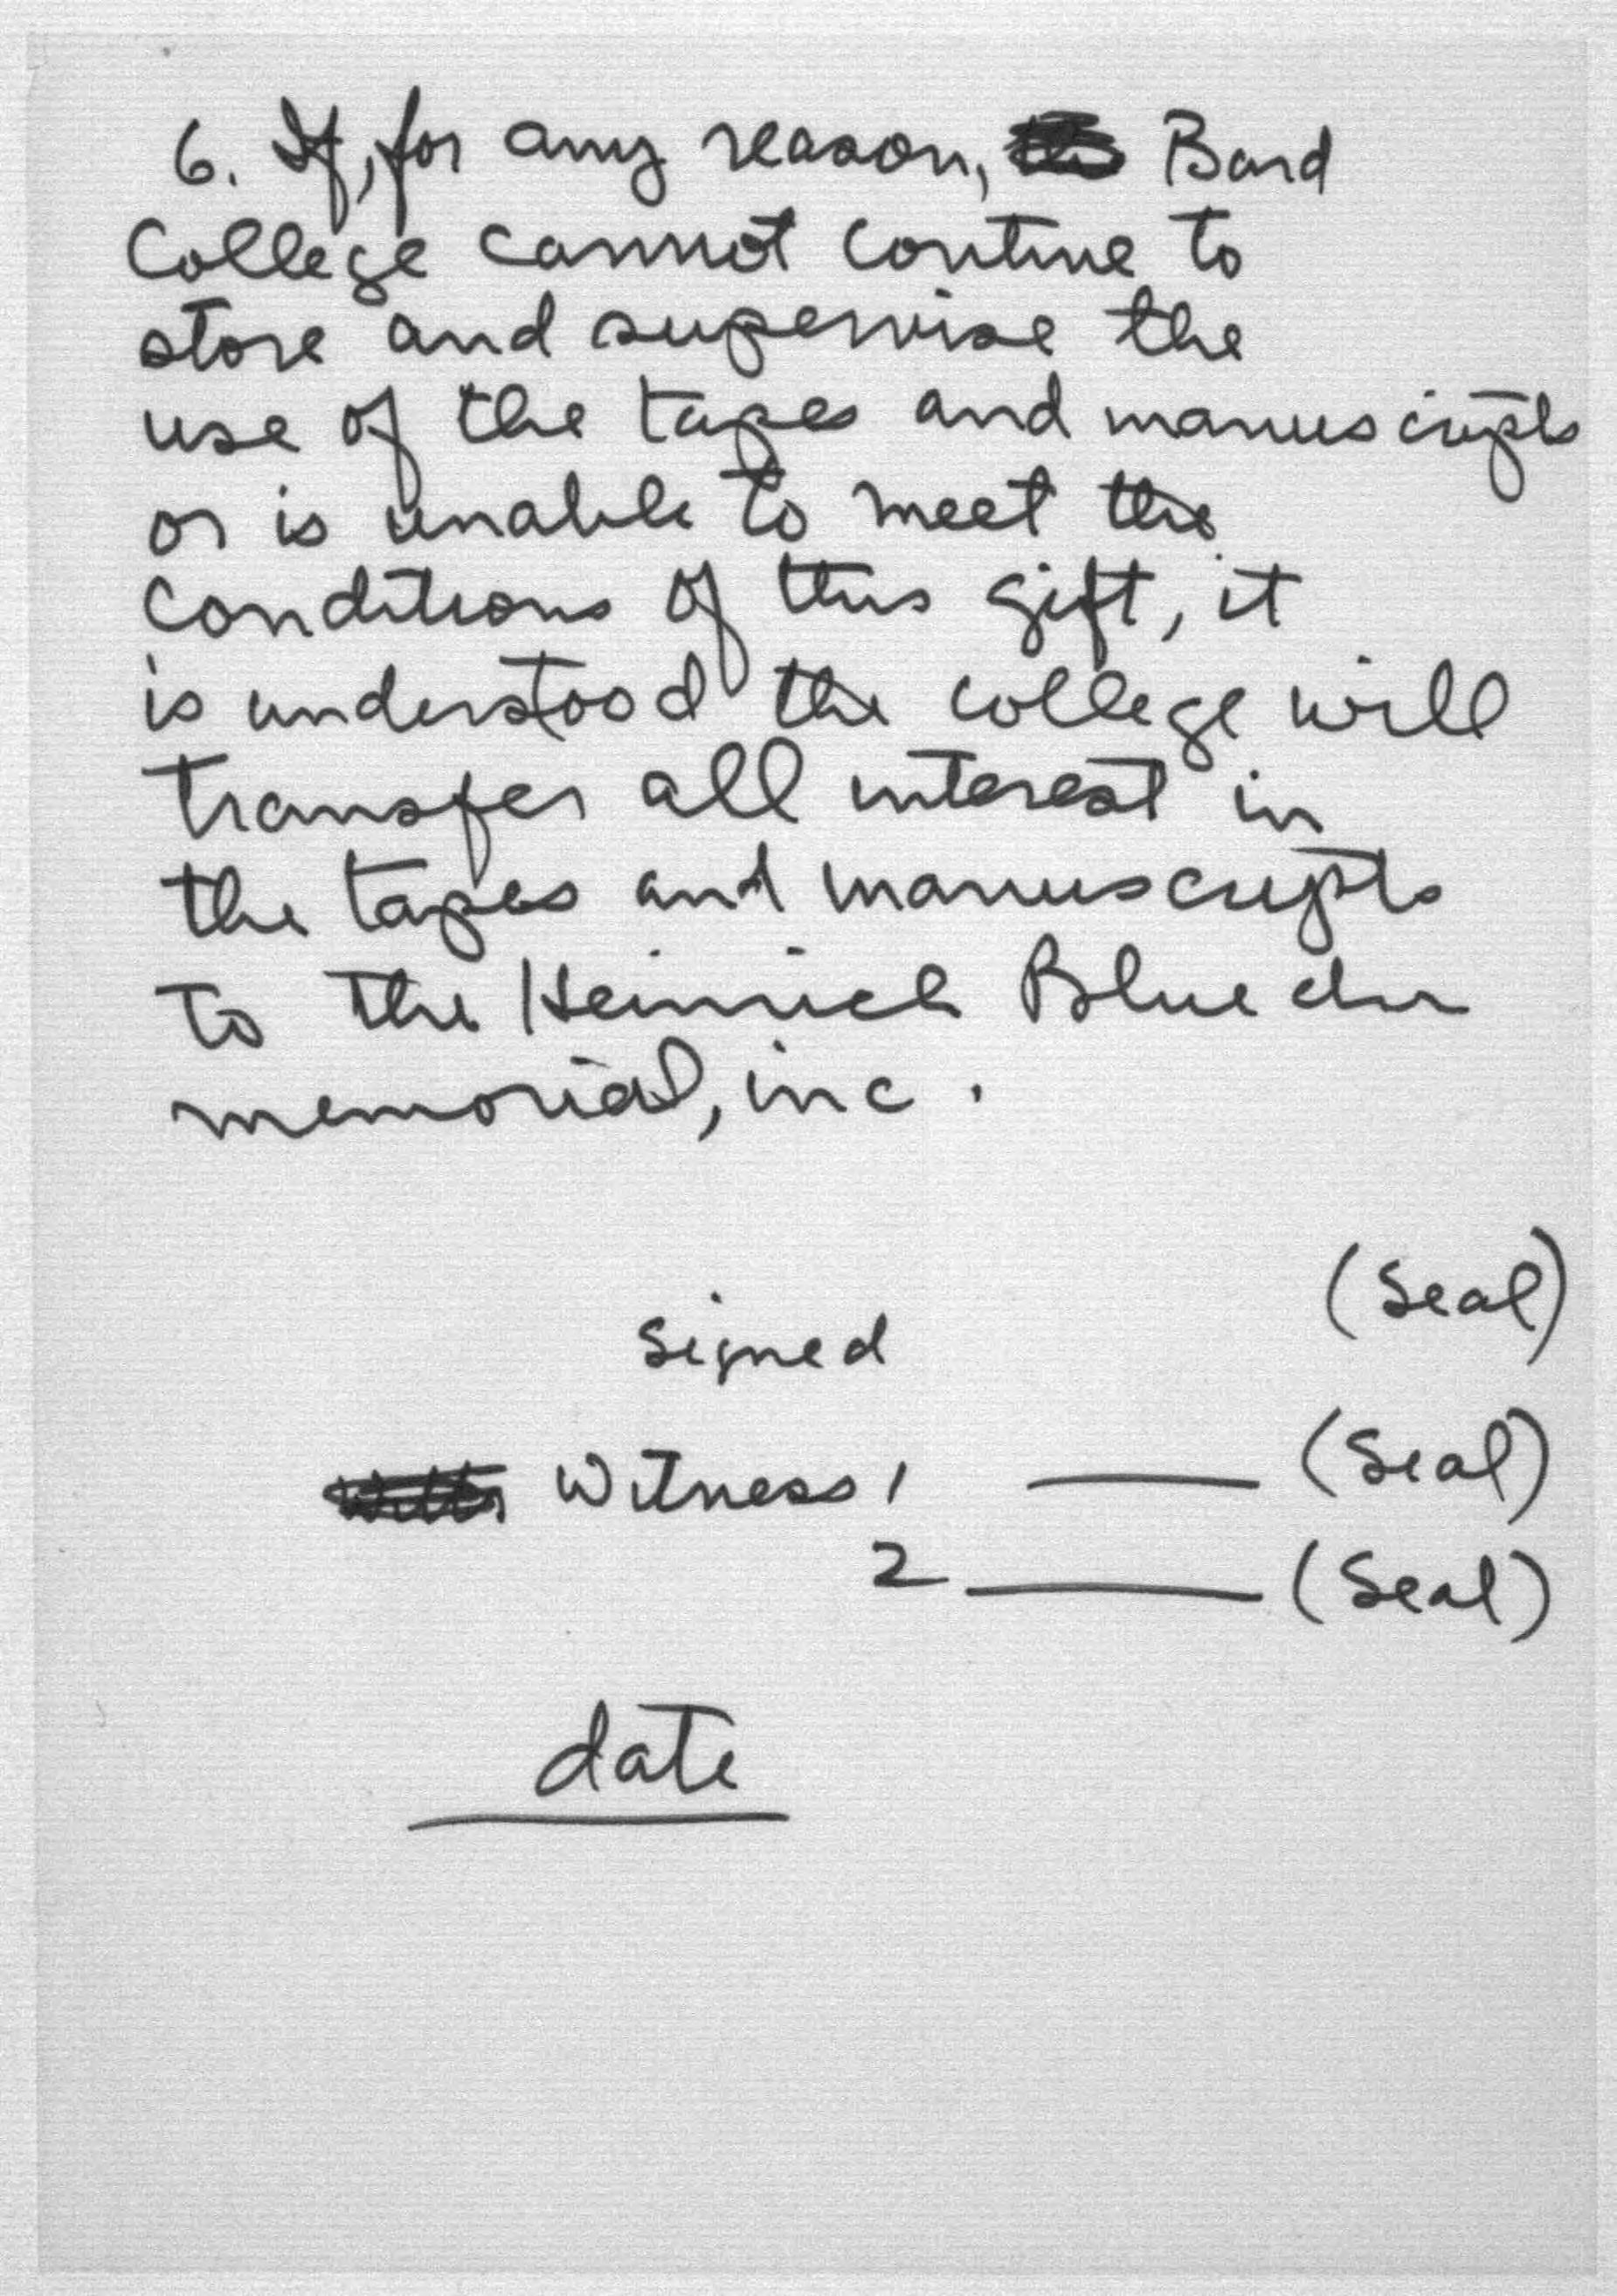 6. If, for any reason, Bard
College cannot contine to
store and supervise the
use of the tapes and manuscripts
or is unable to meet the
conditions of this gift, it
is understood the college will
transfer all interest in
the tapes and manuscripts
to the Heinrich Bluecher
memorial, inc.
(Seal)
signed
Witness 1 ____ (Seal)
2 ____ (Seal)
date